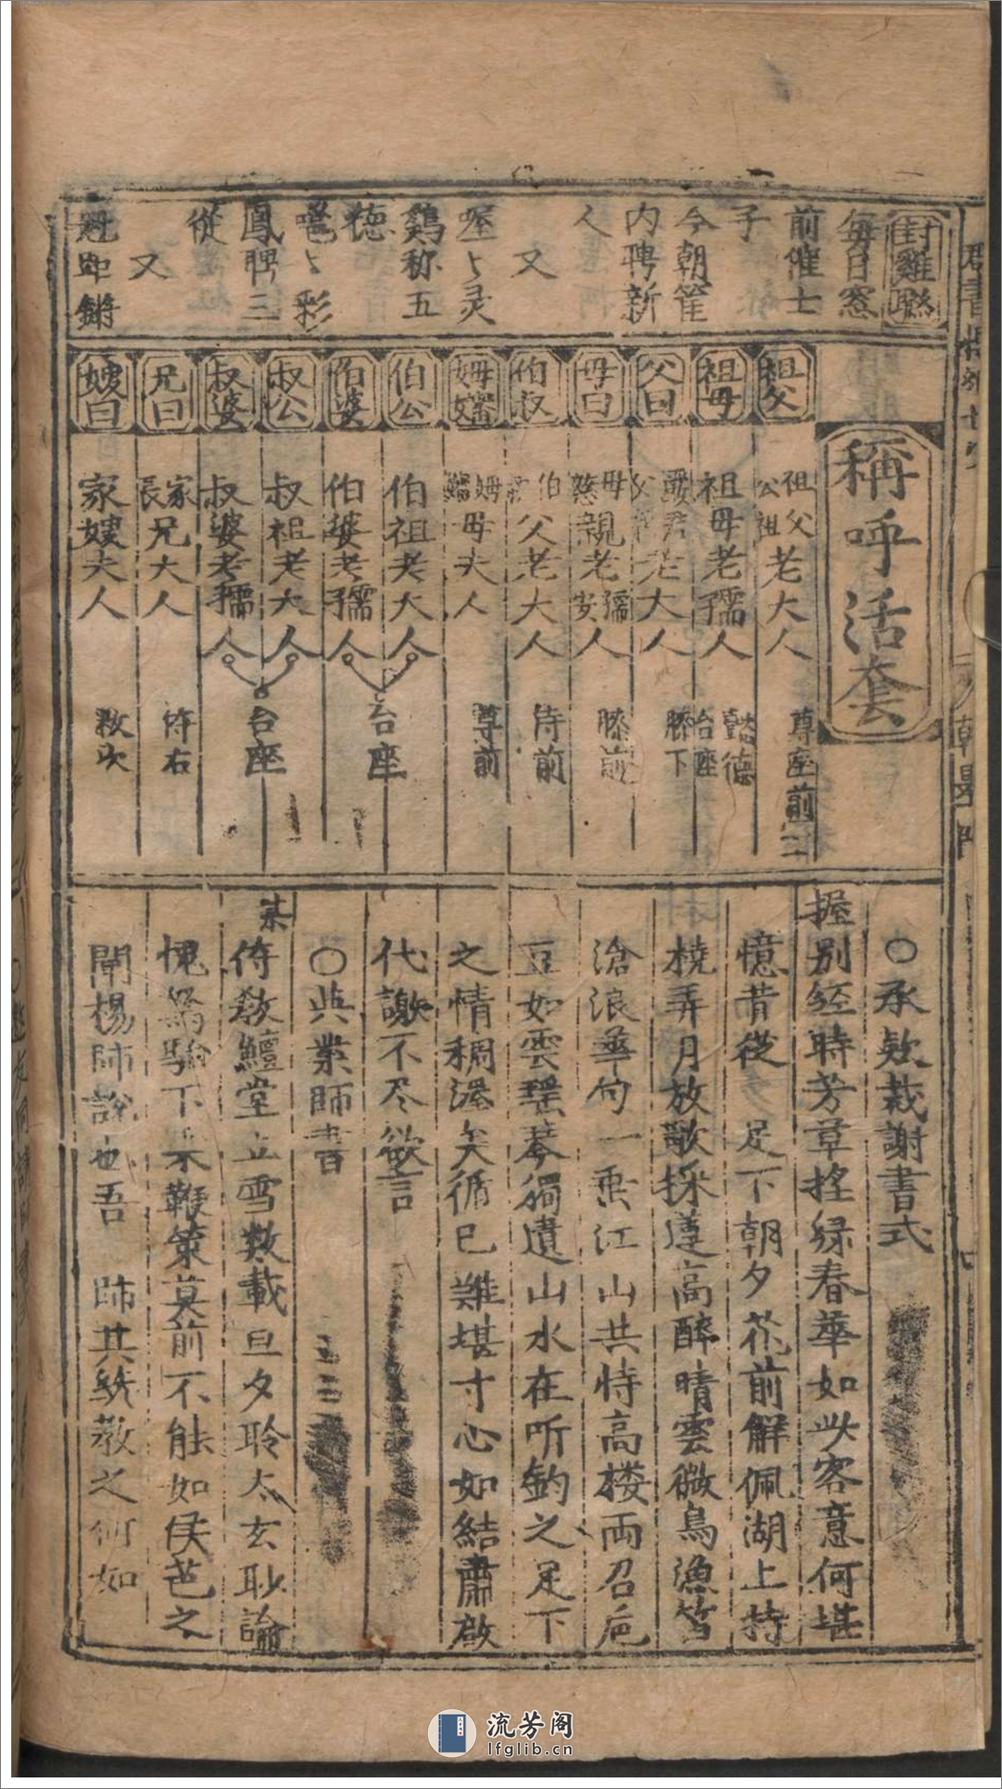 封雞聯
每日窓
前催士
子
今朝篚
内聘新
人
又
喔〻灵
鷄称五
德
噰〻彩
鳳聘三
從
又
稱呼活套
祖父
祖父公祖老大人
尊座前
祖母
祖母老孺人
懿德
台座
父曰
老大人
膝下
母曰
母親老孺人
膝前
伯叔
伯父老大人
侍前
姆嬸
姆母夫人
尊前
伯公
伯祖老大人
伯婆
伯婆老孺人
台座
叔公
叔祖老大人
叔婆
叔婆老孺人
台座
兄曰
家長兄大人
侍右
嫂曰
家嫂夫人
妝次
○承欵裁謝書式
握别经時芳草摇绿春華如此客意何堪
憶昔從 足下朝夕花前解佩湖上持
橈弄月放歌採蓮高醉晴雲微鳥漁笛
滄浪華句一乘江山共恃高楼両召卮
豆如雲瑶琴獨遺山水在所鈞之足下
之情稠渥矣循已難堪寸心如結肅啟
代謝不尽欲言
○與業師書
侍教鱣堂立雪数載旦夕聆太玄耿諭
愧駑駘下乘鞭策莫前不能如侯芭之
闡楊師說也吾 師其終教之何如
流芳阁
lfglib.cn